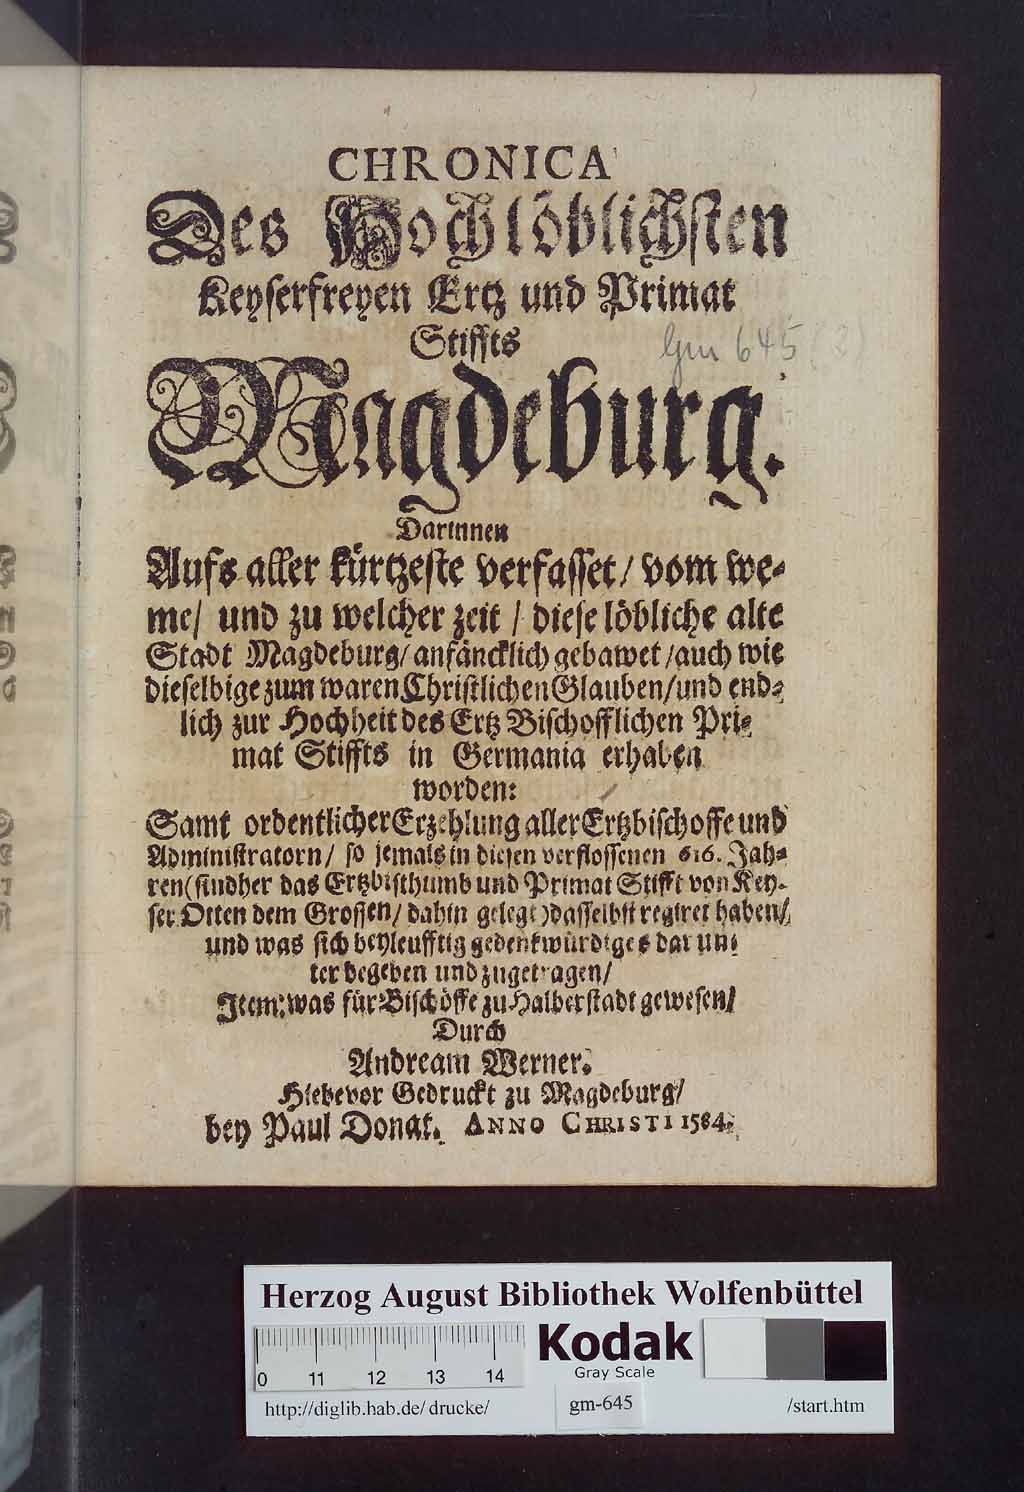 CHRONICA
Des Hochlöblichsten
Keyserfreyen Ertz und Primat
Stiffts
Gm 645
Magdeburg.
Darinnen
Aufs aller kürtzeste verfasset/ vom we-
me/ und zu welcher zeit / diese löbliche alte
Stadt Magdeburg/ anfäncklich gebawet /auch wie
dieselbige zum waren Christlichen Glauben/und end-
lich zur Hochheit des Ertz Bischofflichen Pri-
mat Stiffts in Germania erhaben
worden:
Samt ordentlicher Erzehlung aller Ertzbischoffe und
Administratorn/ so jemals in diesen verflossenen 616. Jah-
ren (sindher das Ertzbisthumb und Primat Stifft von Key-
ser Otten dem Grossen/ dahin gelegt) dasselbst regiret haben/
und was sich beyleufftig gedenkwürdiges darun-
ter begeben und zugetragen/
Item: was für Bischöffe zu Halberstadt gewesen/
Durch
Andream Werner.
Hiebevor Gedruckt zu Magdeburg/
bey Paul Donat. ANNO CHRISTI 1584.
Herzog August Bibliothek Wolfenbüttel
Kodak
Gray Scale
0 11 12 13 14
http://diglib.hab.de/ drucke/ gm-645 /start.htm